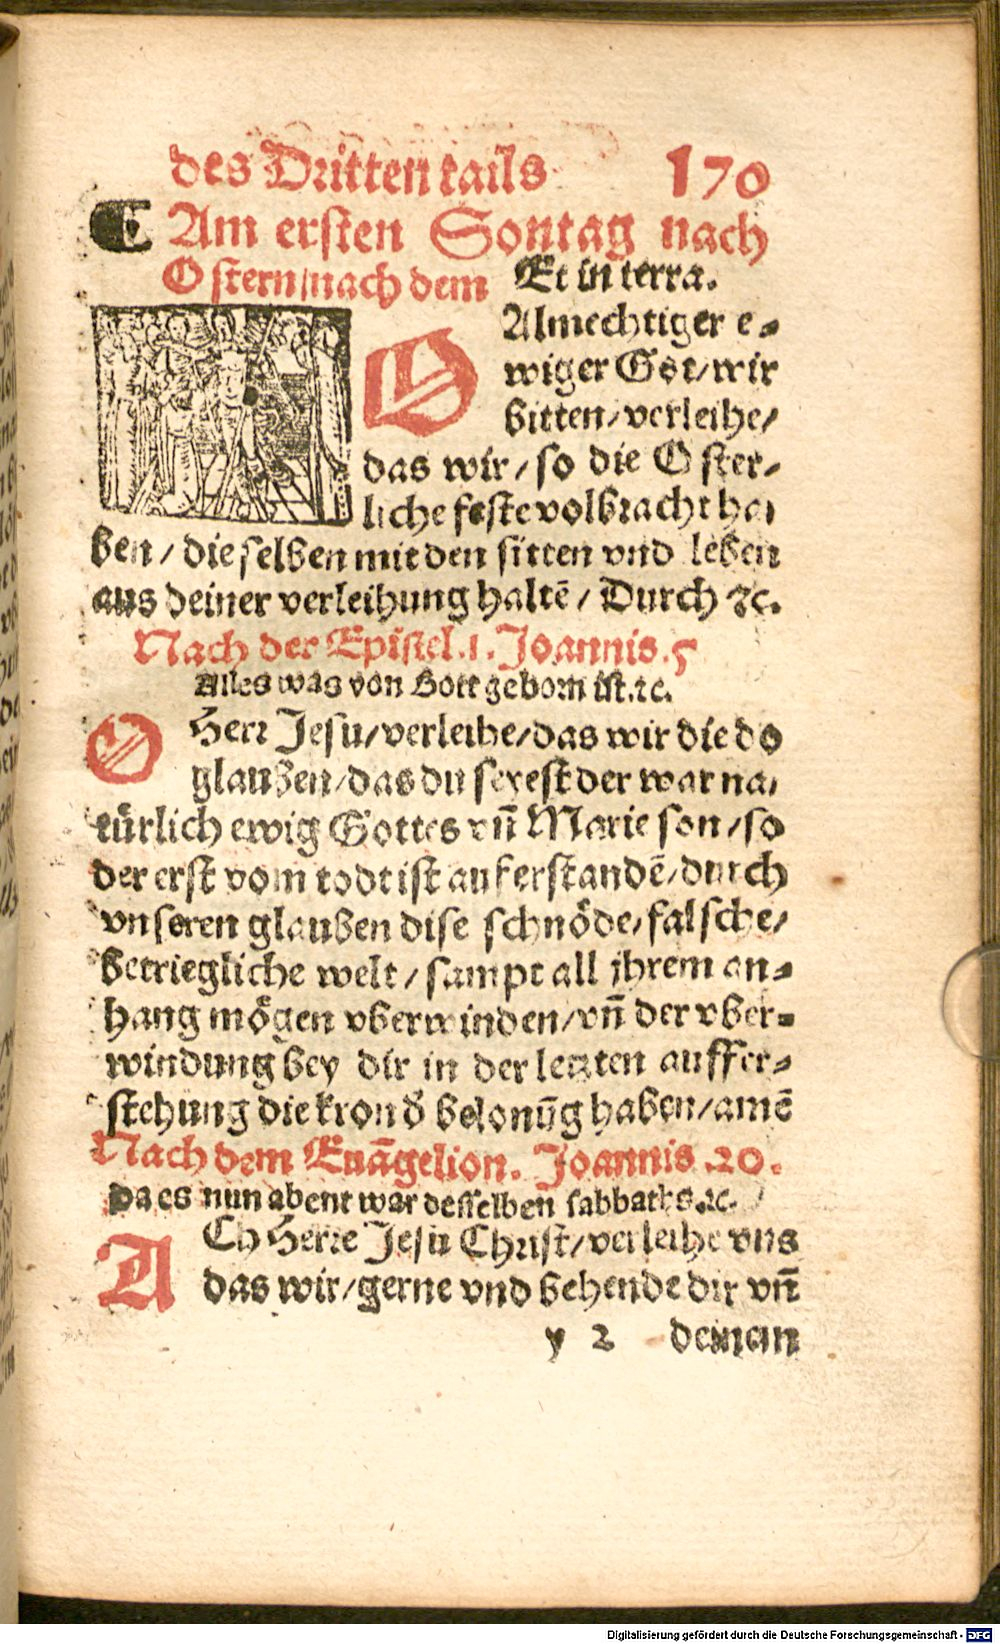 des Dritten tails 170
Am ersten Sontag nach
Ostern/nach dem Et in terra.
O Almechtiger e-
wiger Got/wir
bitten/verleihe/
das wir/so die Oster-
liche feste volbracht ha,
ben/die selben mit den sitten vnd leben
aus deiner verleihung haltē/Durch ꝛc.
Nach der Epistel.1.Joannis.5
Alles was von Gott geborn ist.ꝛc.
O Herr Jesu/verleihe/das wir die do
glauben/das du seyest der war na,
türlich ewig Gottes vn̄ Marie son/so
der erst vom todt ist auferstandē/durch
vnseren glauben dise schnöde/falsche/
betriegliche welt/sampt all jhrem an-
hang mögen vberwinden/vn̄ der vber-
windung bey dir in der letzten auffer-
stehung die kron d̄ belonūg haben/amē
Nach dem Euāgelion. Joannis.20.
Da es nun abent war desselben sabbaths.ꝛc.
ACh Herre Jesu Christ/verleihe vns
das wir/gerne vnd behende dir vn̄
y 2 deinen
Digitalisierung gefördert durch die Deutsche Forschungsgemeinschaft - DFG